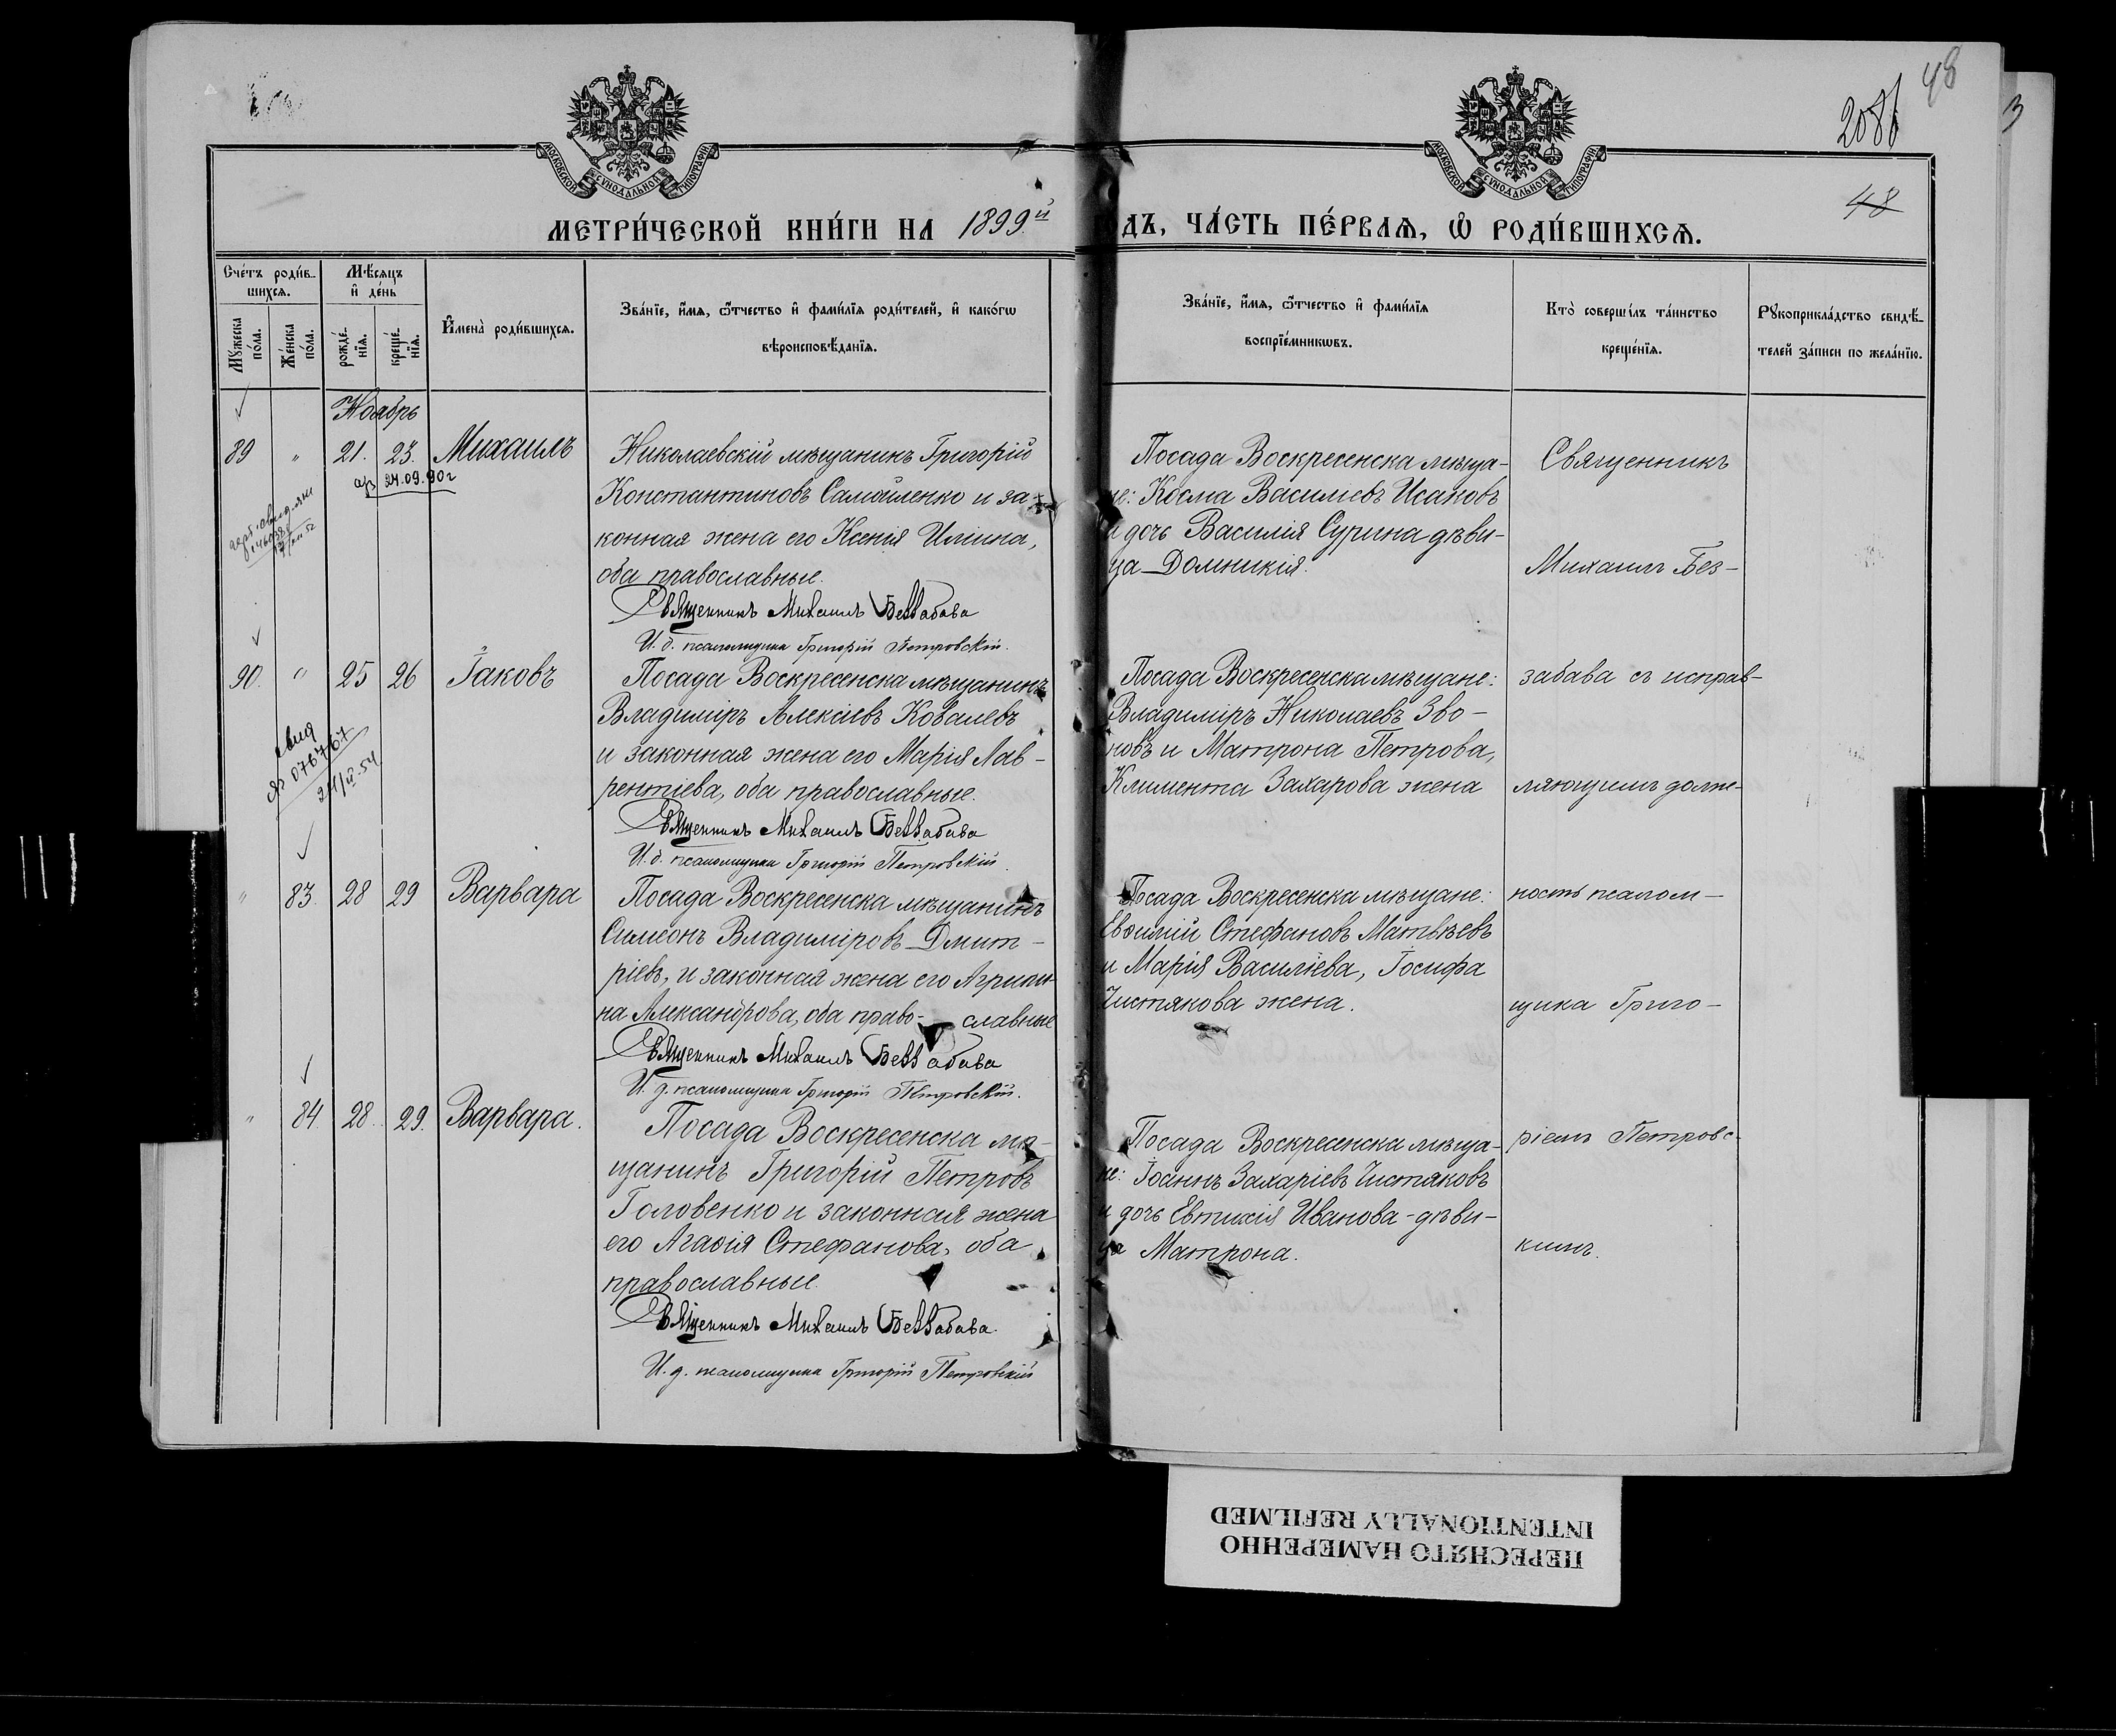 48
2086
3
МОСКОВСКОЙ СУНОДАЛЬНОЙ ТИПОГРАФІИ
МОСКОВСКОЙ СУНОДАЛЬНОЙ ТИПОГРАФІИ
48
МЕТРИ́ЧЕСКОЙ КНИ́ГИ НА 1899й
ДЪ, ЧА́СТЬ ПЕ́РВАѦ, Ѡ҆ РОДИ́ВШИХСѦ.
Сче́тъ роди́в-
шихсѧ.
Мѣ́сѧцъ
и҆ де́нь
И҆мена̀ роди́вшихсѧ.
Зва́нїе, и҆́мѧ, ѻ҆́тчество и҆ фами́лїѧ роди́телей, и҆ како́гѡ
вѣроисповѣ́данїѧ.
Мꙋ́жеска
по́ла.
Же́нска
по́ла.
рожде́-
нїѧ.
креще́-
нїѧ.
Зва́нїе, и҆́мѧ, ѻ҆́тчество и҆ фами́лїѧ
воспрїе́мникѡвъ.
Кто̀ соверши́лъ та́инство
креще́нїѧ.
Рꙋкоприкла́дство свидѣ́-
телей за́писи по жела́нїю.
Ноябрь
89 " 21. 23. Михаилъ
24.09.90г
Николаевскій мѣщанинъ Григорій
Константиновъ Самойленко и за-
конная жена его Ксенія Иліина,
оба православные.
Священникъ Михаилъ Беззабава
И. д. псаломщика Григорій Петровскій.
Посада Воскресенска мѣща-
не: Косма Василіевъ Исаковъ
и дочь Василія Сурина дѣви-
ца Домникія.
Священникъ
Михаилъ Без-
90. " 25 26 Іаковъ
свид
076767
Посада Воскресенска мѣщанинъ
Владиміръ Алексіевъ Ковалевъ
и законная жена его Марія Лав-
рентіева, оба православные.
Священникъ Михаилъ Беззабава
И. д. псаломщика Григорій Петровскій
Посада Воскресенска мѣщане:
Владиміръ Николаевъ Зво-
новъ и Матрона Петрова,
Климента Захарова жена
забава съ исправ-
ляющимъ долж-
" 83. 28 29 Варвара
Посада Воскресенска мѣщанинъ
Симеонъ Владиміровъ Дмит-
ріевъ, и законная жена его Агрипи-
на Александрова, оба право- славные
Священникъ Михаилъ Беззабава
И. д. псаломщика Григорій Петровскій.
Посада Воскресенска мѣщане:
Евѳимій Стефановъ Матвѣевъ
и Марія Василіева, Іосифа
Чистякова жена.
ность псалом-
щика Григо-
" 84 28. 29. Варвара.
Посада Воскресенска мѣ-
щанинъ Григорій Петровъ
Головенко и законная жена
его Агаѳія Стефанова, оба
православные.
Священникъ Михаилъ Беззабава.
И. д. псаломщика Григорій Петровскій
Посада Воскресенска мѣща-
не: Іоаннъ Захаріевъ Чистяковъ
и дочь Евтихія Иванова-дѣви-
ца Матрона.
ріемъ Петровс-
кимъ.
ПЕРЕСНЯТО НАМЕРЕННО
INTENTIONALLY REFILMED